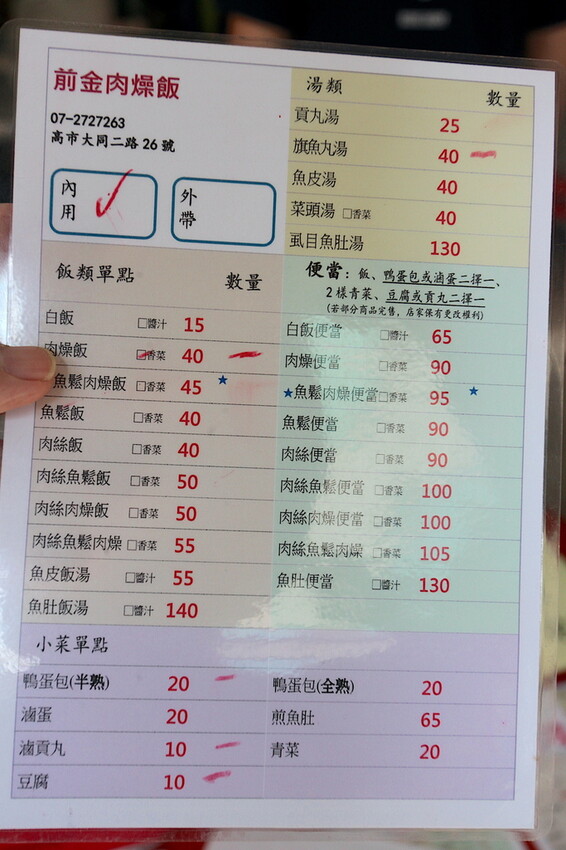 前金肉燥飯
07-2727263
高市大同二路 26 號
內用
外帶
湯類 數量
貢丸湯 25
旗魚丸湯 40
魚皮湯 40
菜頭湯 □香菜 40
虱目魚肚湯 130
飯類單點 數量
白飯 □醬汁 15
肉燥飯 □香菜 40
魚鬆肉燥飯 □香菜 45 ★
魚鬆飯 □香菜 40
肉絲飯 □香菜 40
肉絲魚鬆飯 □香菜 50
肉絲肉燥飯 □香菜 50
肉絲魚鬆肉燥 □香菜 55
魚皮飯湯 □醬汁 55
魚肚飯湯 □醬汁 140
便當：飯、鴨蛋包或滷蛋二擇一、
2 樣青菜、豆腐或貢丸二擇一
(若部分商品完售，店家保有更改權利)
白飯便當 □醬汁 65
肉燥便當 □香菜 90
★魚鬆肉燥便當□香菜 95 ★
魚鬆便當 □香菜 90
肉絲便當 □香菜 90
肉絲魚鬆便當 □香菜 100
肉絲肉燥便當 □香菜 100
肉絲魚鬆肉燥 □香菜 105
魚肚便當 □醬汁 130
小菜單點
鴨蛋包(半熟) 20 鴨蛋包(全熟) 20
滷蛋 20 煎魚肚 65
滷貢丸 10 青菜 20
豆腐 10